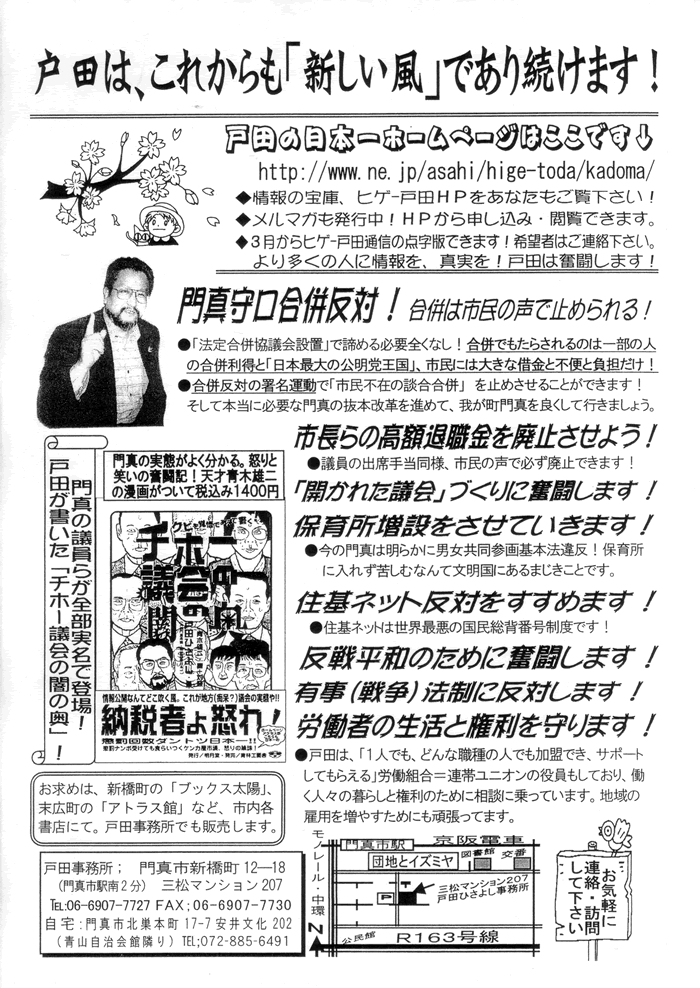 戸田は、これからも「新しい風」であり続けます！
戸田の日本一ホームページはここです↓
http://www.ne.jp/asahi/hige-toda/kadoma/
◆情報の宝庫、ヒゲｰ戸田ＨＰをあなたもご覧下さい！
◆メルマガも発行中！ＨＰから申し込み・閲覧できます。
◆３月からヒゲｰ戸田通信の点字版できます！希望者はご連絡下さい。
より多くの人に情報を、真実を！戸田は奮闘します！
門真守口合併反対！ 合併は市民の声で止められる！
●「法定合併協議会設置」で諦める必要全くなし！合併でもたらされるのは一部の人
の合併利得と「日本最大の公明党王国」、市民には大きな借金と不便と負担だけ！
●合併反対の署名運動で「市民不在の談合合併」を止めさせることができます！
そして本当に必要な門真の抜本改革を進めて、我が町門真を良くして行きましょう。
市長らの高額退職金を廃止させよう！
●議員の出席手当同様、市民の声で必ず廃止できます！
「開かれた議会」づくりに奮闘します！
保育所増設をさせていきます！
●今の門真は明らかに男女共同参画基本法違反！保育所
に入れず苦しむなんて文明国にあるまじきことです。
住基ネット反対をすすめます！
●住基ネットは世界最悪の国民総背番号制度です！
反戦平和のために奮闘します！
有事（戦争）法制に反対します！
労働者の生活と権利を守ります！
●戸田は、「１人でも、どんな職種の人でも加盟でき、サポート
してもらえる」労働組合＝連帯ユニオンの役員もしており、働
く人々の暮らしと権利のために相談に乗っています。地域の
雇用を増やすためにも頑張ってます。
門真の議員らが全部実名で登場！
戸田が書いた「チホー議会の闇の奥」！
門真の実態がよく分かる。怒りと
笑いの奮闘記！天才青木雄二
の漫画がついて税込み１４００円
チホー議会の闇の奥
戸田ひさよし 著
情報公開なんてどこ吹く風。これが地方(痴呆？)議会の実態や!!
納税者よ怒れ！
懲罰回数ダントツ日本一!!
懲罰ナンボ受けても食らいつくケンカ屋市議、怒りの鎮魂！
発行／明月堂・発売／青林工藝舎
お求めは、新橋町の「ブックス太陽」、
末広町の「アトラス館」など、市内各
書店にて。戸田事務所でも販売します。
戸田事務所； 門真市新橋町 12―18
（門真市駅南２分） 三松マンション 207
TEL:06-6907-7727 FAX；06-6907-7730
自宅：門真市北巣本町 17-7 安井文化 202
（青山自治会館隣り）TEL;072-885-6491
モノレール・中環
門真市駅
京阪電車
団地とイズミヤ
図書館
交番
P
三松マンション207
戸田ひさよし事務所
N
公民館
R１６３号線
お気軽に
連絡・訪問
して下さい